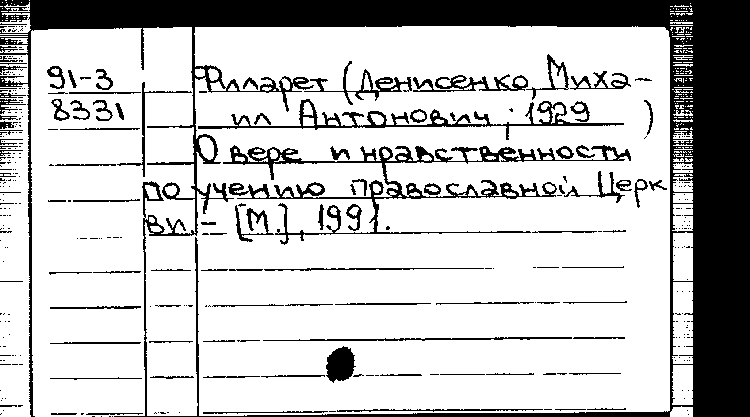 91-3 Филарет (Денисенко, Миха-
8331 ил Антонович; 1929 )
О вере и нравственности
по учению православной Церк
ви. - [М.], 1991.